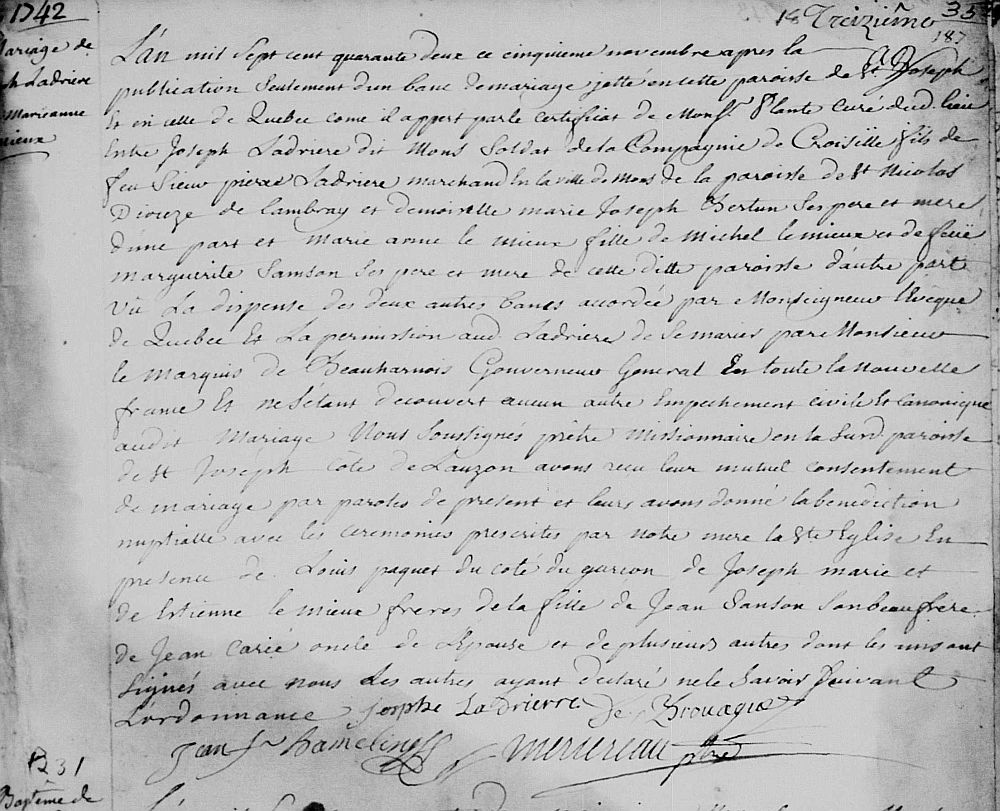 1742
18 Treizième 35
187
Mariage de
ph Ladriere
Marianne
mieux
L'an mil sept cent quarante deux ce cinquieme novembre apres la
publication seulement d'un banc de mariage jetté en cette paroisse de St Joseph
Et en celle de Quebec come il appert par le certificat de Monsr Plante Curé dud. lieu
Entre Joseph Ladriere dit Mons Soldat de la Compagnie de Croisille fils de
feu Sieur pierre Ladriere marchand En la ville de Mons de la paroisse de St Nicolas
Dioceze de Cambray et demoiselle marie Joseph Bertun Ses pere et mere
d'une part et Marie anne le mieux fille de Michel le mieux et de feüe
marguerite Samson Ses pere et mere de cette ditte paroisse d'autre part
Vû La dispense des deux autres bancs accordée par Monseigneur l'Evêque
de Quebec Et La permission aud. Ladriere de Se marier par Monsieur
le Marquis de Beauharnois Gouverneur General En toute la nouvelle
france Et ne S'étant decouvert aucun autre Empechement civile Et Canonique
audit Mariage Nous Soussignés prêtre Missionnaire en la Surd. paroisse
de St Joseph cote de Lauzon avons recu leur mutuel consentement
de mariage par paroles de present et leurs avons donné la benediction
nuptialle avec les ceremonies prescrites par Notre mere la Ste Eglise En
presence de Louis paquet du coté du garcon de Joseph marie et
de Estienne le mieux freres de la fille de Jean Sanson Son beau frere
de Jean Carié oncle de L'Epouse et de plusieurs autres dont les uns ont
Signés avec nous Les autres ayant declaré ne le Savoir Suivant
L'ordonnance Josephe Ladrierre De Brouague
Jean Hamelin Mercereau ptre
B31
Baptême de